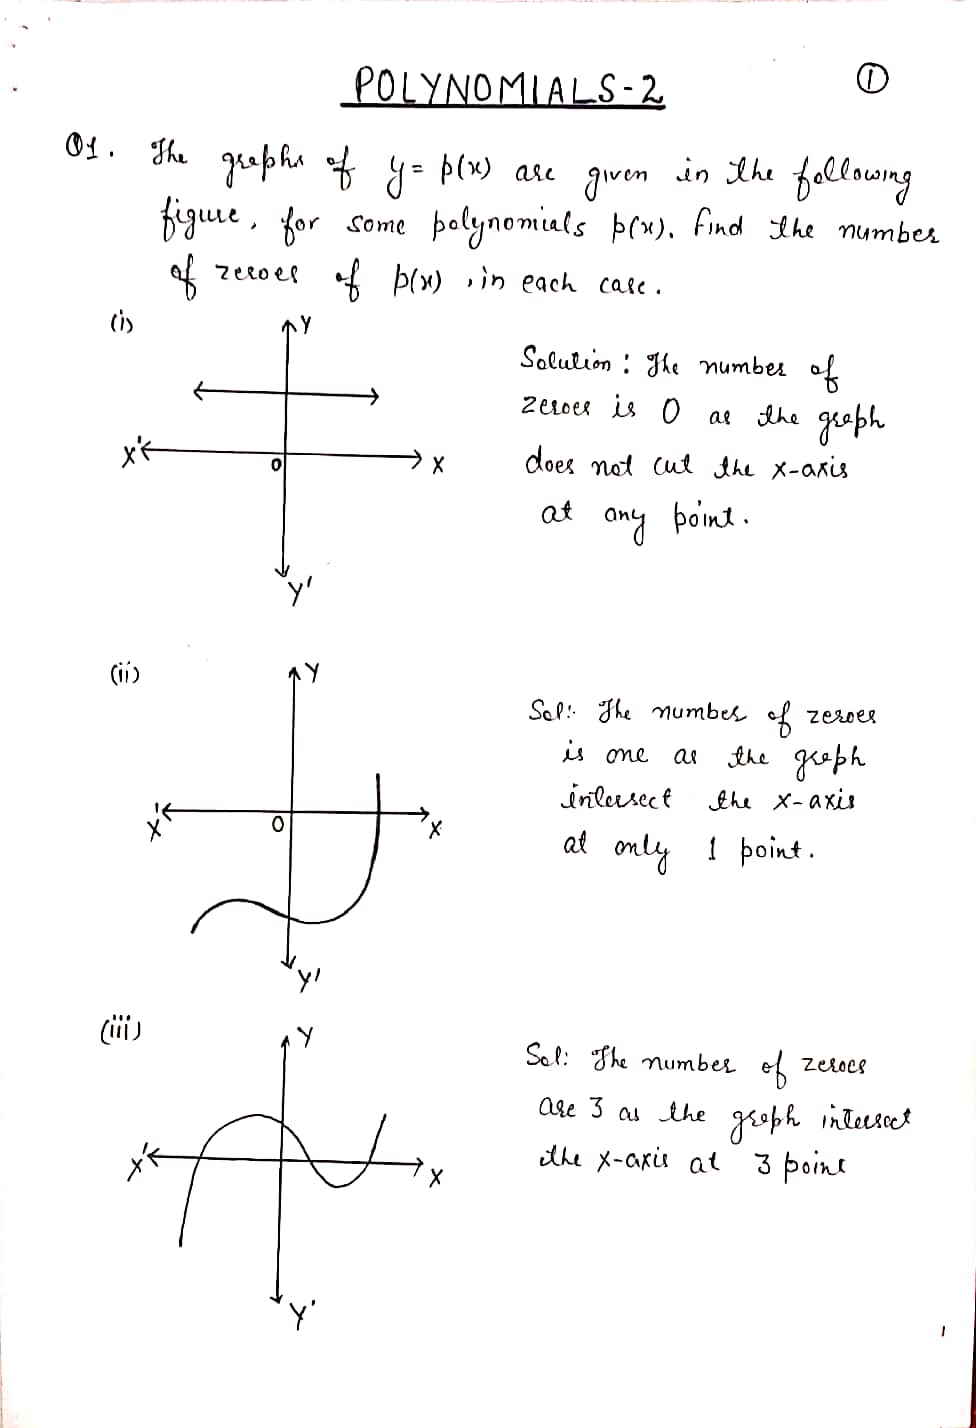 POLYNOMIALS-2
①
Q1. The graphs of y = p(x) are given in the following
figure, for some polynomials p(x). Find the number
of zeroes of p(x), in each case.
(i)
Y
X'
O
X
Y'
Solution: The number of
zeroes is 0 as the graph
does not cut the x-axis
at any point.
(ii)
Y
X'
O
X
Y'
Sol:- The number of zeroes
is one as the graph
intersect the x-axis
at only 1 point.
(iii)
Y
X'
X
Y'
Sol: The number of zeroes
are 3 as the graph intersect
the x-axis at 3 point